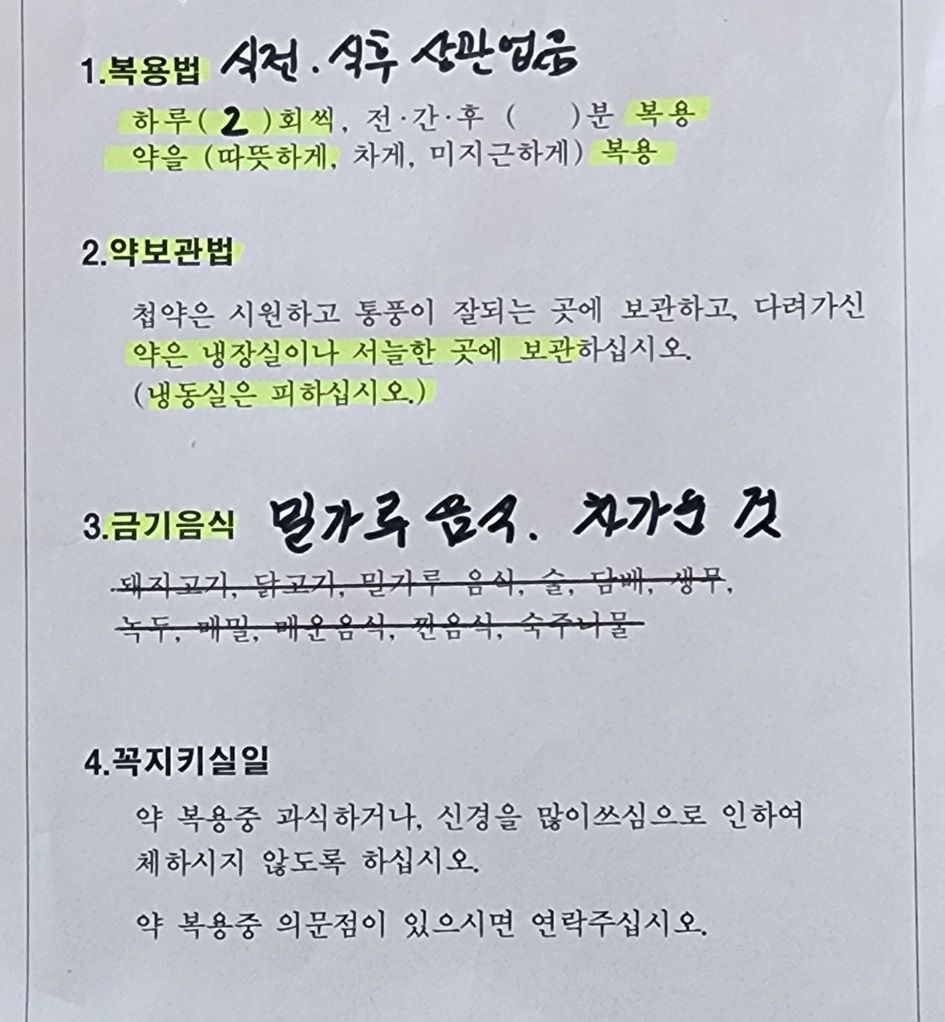 1.복용법 식전·식후 상관없음
하루( 2 )회씩, 전·간·후 (    )분 복용
약을 (따뜻하게, 차게, 미지근하게) 복용
2.약보관법
첩약은 시원하고 통풍이 잘되는 곳에 보관하고, 다려가신
약은 냉장실이나 서늘한 곳에 보관하십시오.
(냉동실은 피하십시오.)
3.금기음식 밀가루 음식. 차가운 것
돼지고기, 닭고기, 밀가루 음식, 술, 담배, 생무,
녹두, 메밀, 매운음식, 찐음식, 숙주나물
4.꼭지키실일
약 복용중 과식하거나, 신경을 많이쓰심으로 인하여
체하시지 않도록 하십시오.
약 복용중 의문점이 있으시면 연락주십시오.